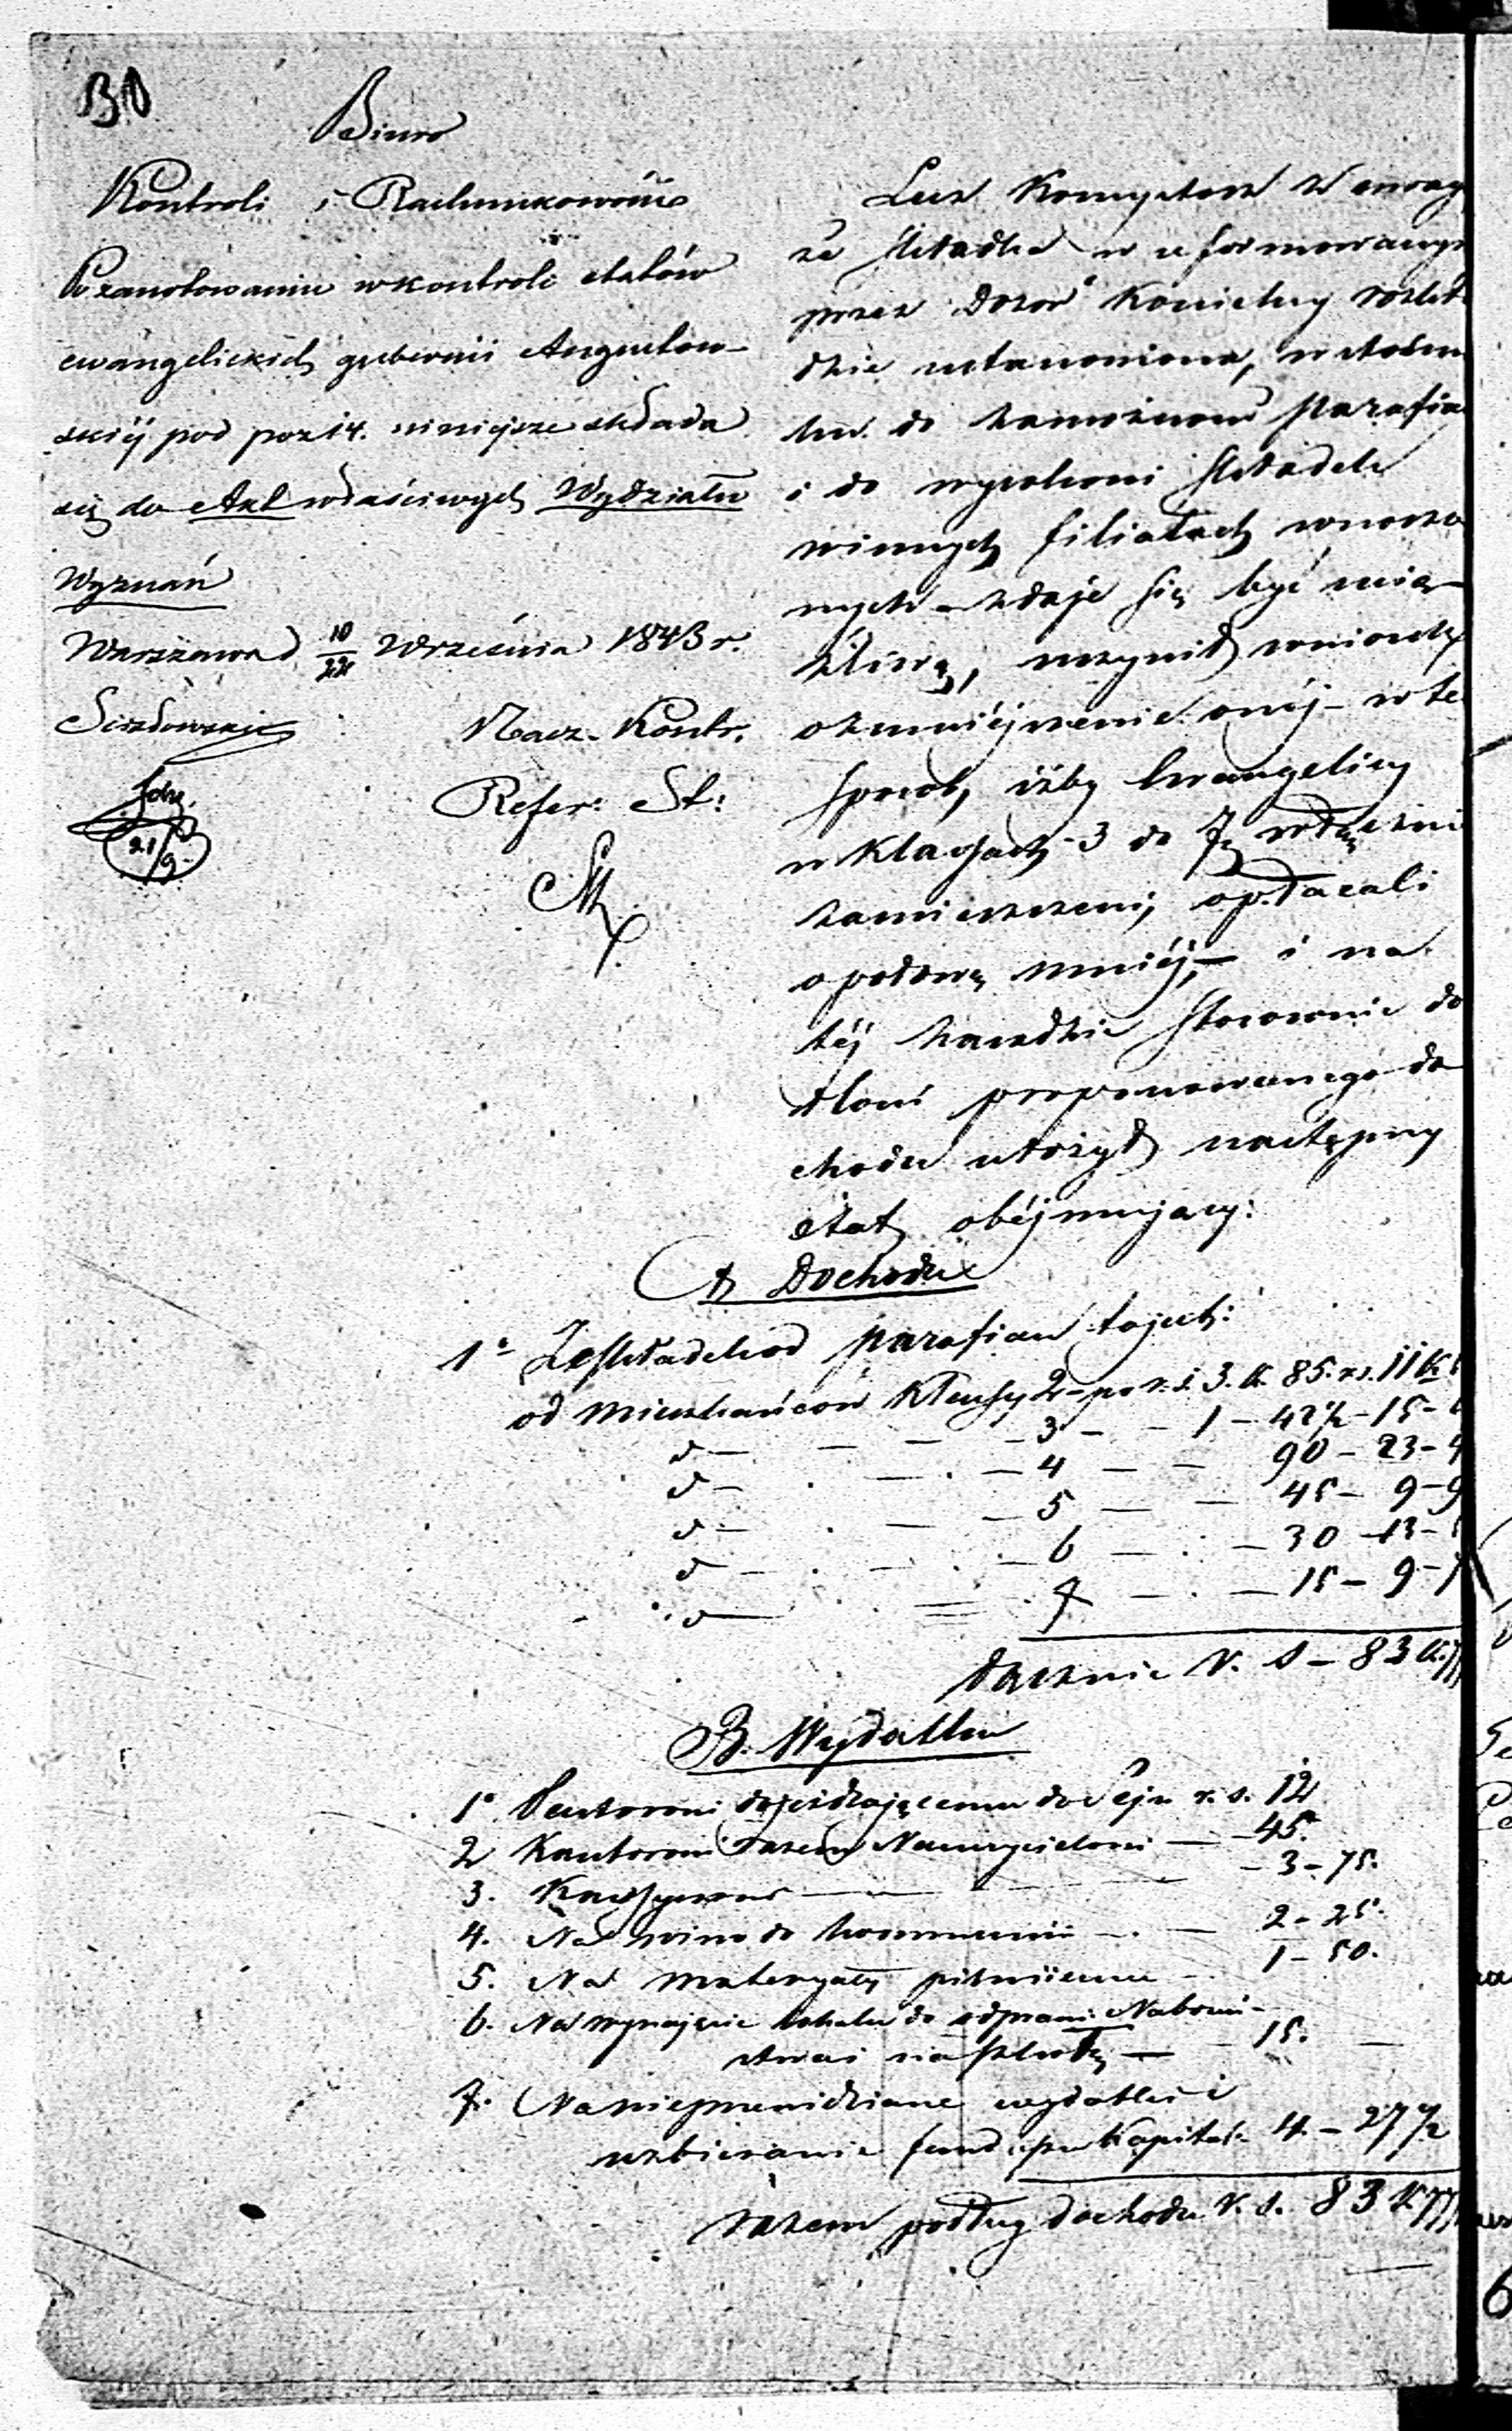 BD
Biuro
Kontroli i Rachunkowości
Po zanotowaniu w kontroli etatów
ewangelickich gubernii Augustow-
skiéj pod poz 14. niniejsze składa
się do Akt właściwych Wydziału
Wyznań
Warszawa d. 10/22 Września 1843 r.
Nacz. Kontr.
Refer: St:
21/9
Lecz Konsystorz w uwag
że składka w uformowanym
przez Dozór Kościelny rozkła
dzie ustanowiona, w stosun
ku do zamożności parafia
i do wysokości składek
w innych filiałach wnoszo
nych zdaje się być ucią-
żliwą, uczynił wniosek
o zmniéjszenie onéj w te
sposób, iżby Ewangelicy
w klassach 3 do 7 włącznie
zamieszczeni, opłacali
o połowę mniéj, i na
téj zasadzie stosownie do
ilości proponowanego do
chodu ułożył następny
etat obéjmujący:
A Dochodu
1° Ze składek od parafian to jest:
od mieszkańców klassy 2 - po r. s. 3. k. 85. r.s. 11 k
d - - - 3 - - 1 - 42½ - 15 -
d - - - 4 - - 90 - 23 - 4
d - - - 5 - - 45 - 9 - 9
d - - - 6 - - 30 - 13 -
d - - - 7 - - 15 - 9 - 1
łącznie r. s - 83 k. 77
B. Wydatku
1° Pastorowi dojeżdżającemu do Sejn r. s. 12
2 Kantorowi razem Nauczycielowi - 45.
3. Kassyerowi - 3 - 75.
4. Na wino do kommunii - 2 - 25.
5. Na materyały piśmienne - 1 - 50.
6. Na wynajęcie lokalu do odpraw: Nabożeń-
stwa i na szkołę - 15. -
7. Na nieprzewidziane wydatki i
uzbieranie fundusz Kapitał. 4 - 27½
razem podług dochodu r. s. 83 k 77